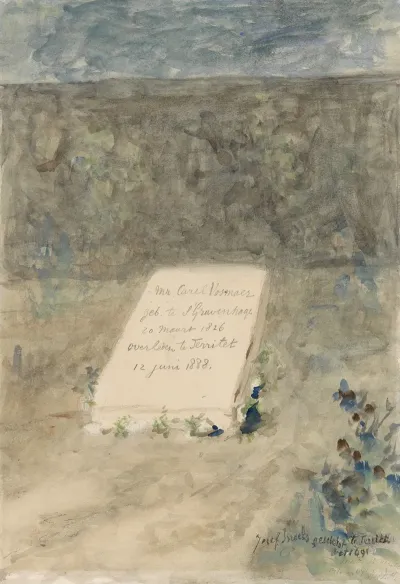 Mr. Carel Vosmaer
geb. te S Gravenhage
20 maart 1826
overleden te Territet
12 juni 1888.
Jozef Israëls te Territet